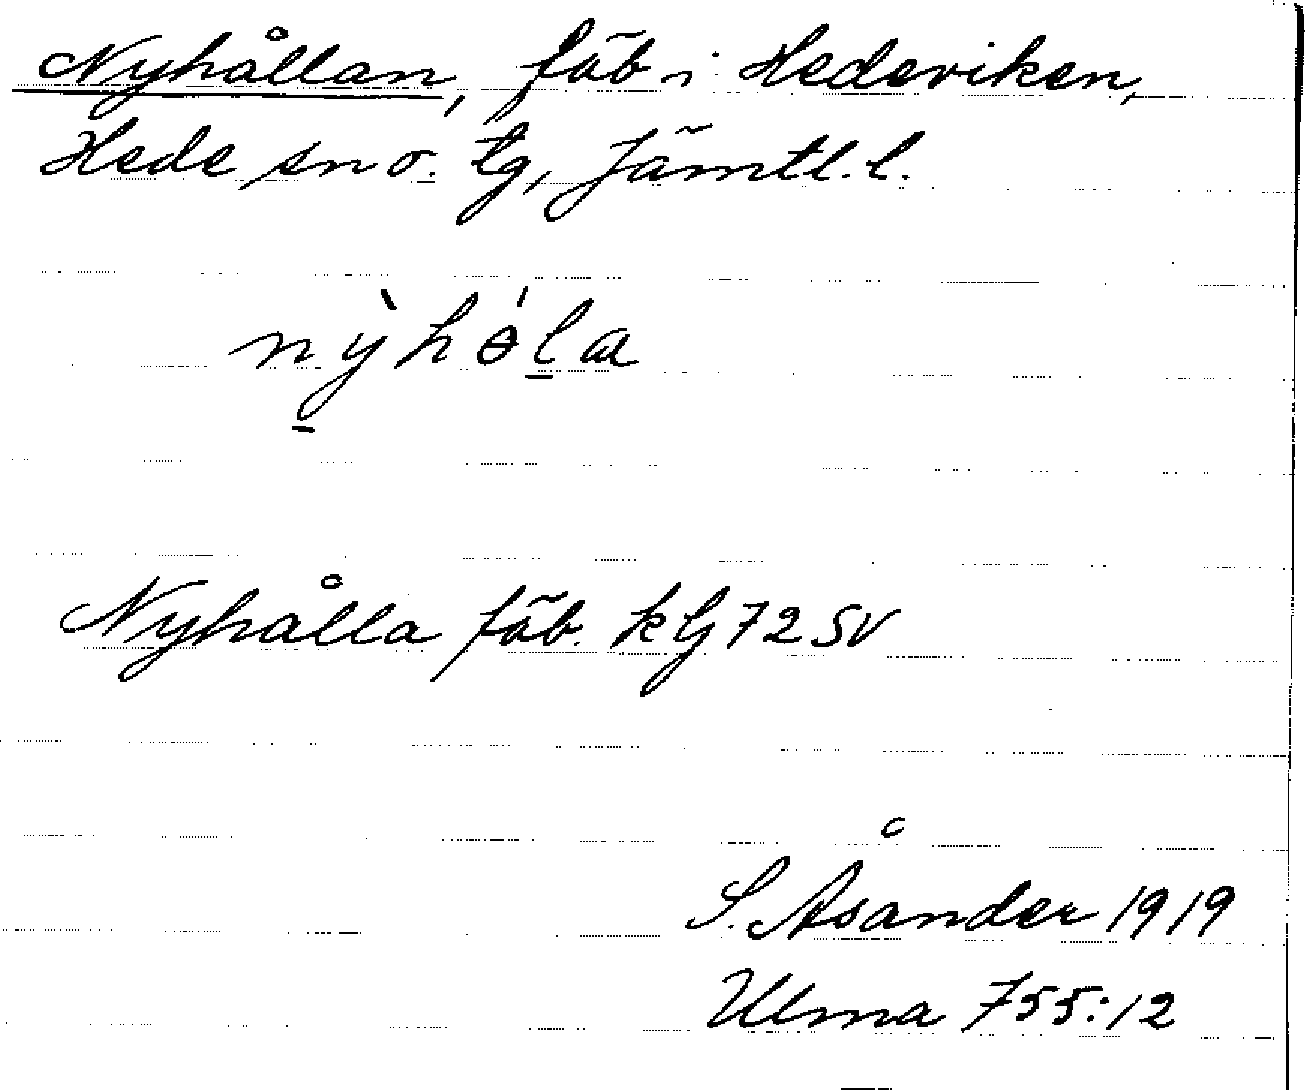 Nyhållan, fäb i Hedeviken,
Hede sn o. tg, Jämtl. l.
nỳhɵ́la
Nyhålla fäb. kG 72 SV
S. Åsander 1919
Ulma 755:12